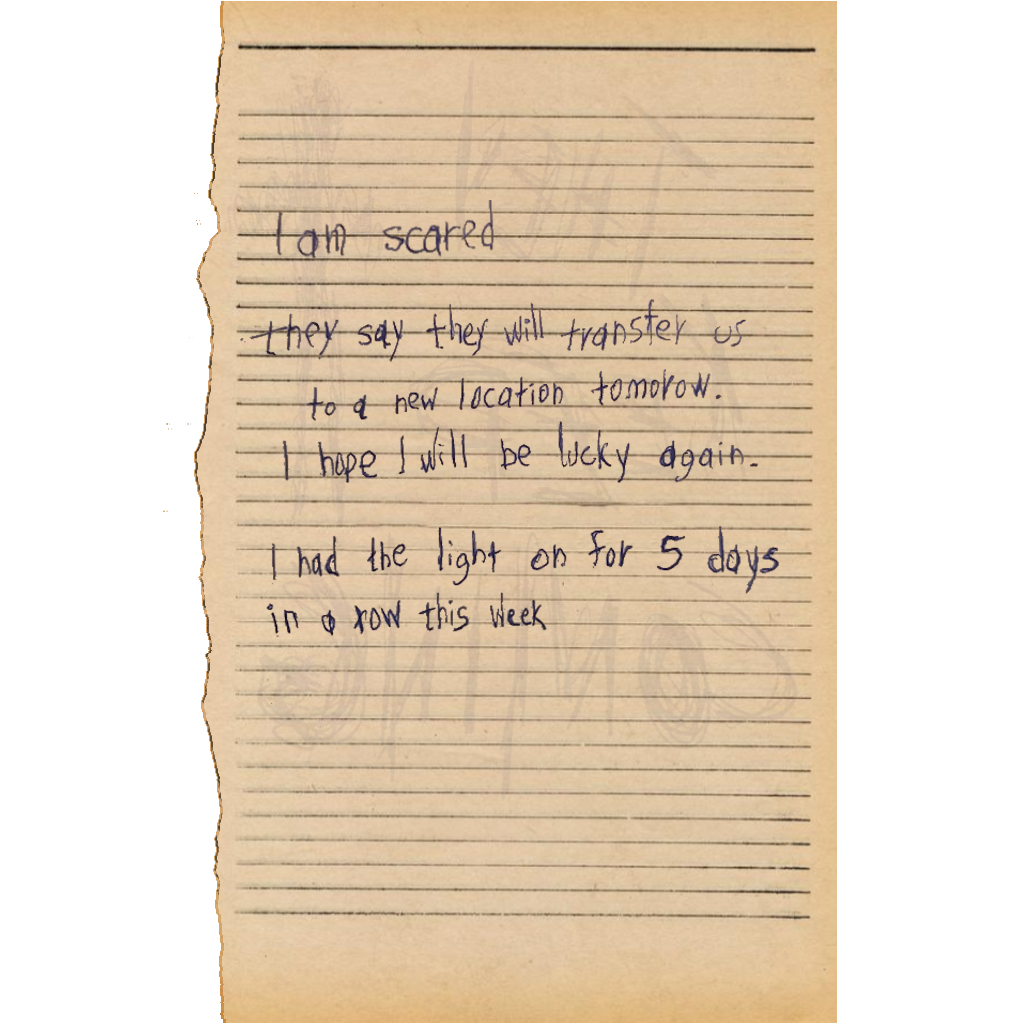 I am scared
they say they will transfer us
to a new location tomorow.
I hope I will be lucky again.
I had the light on for 5 days
in a row this week